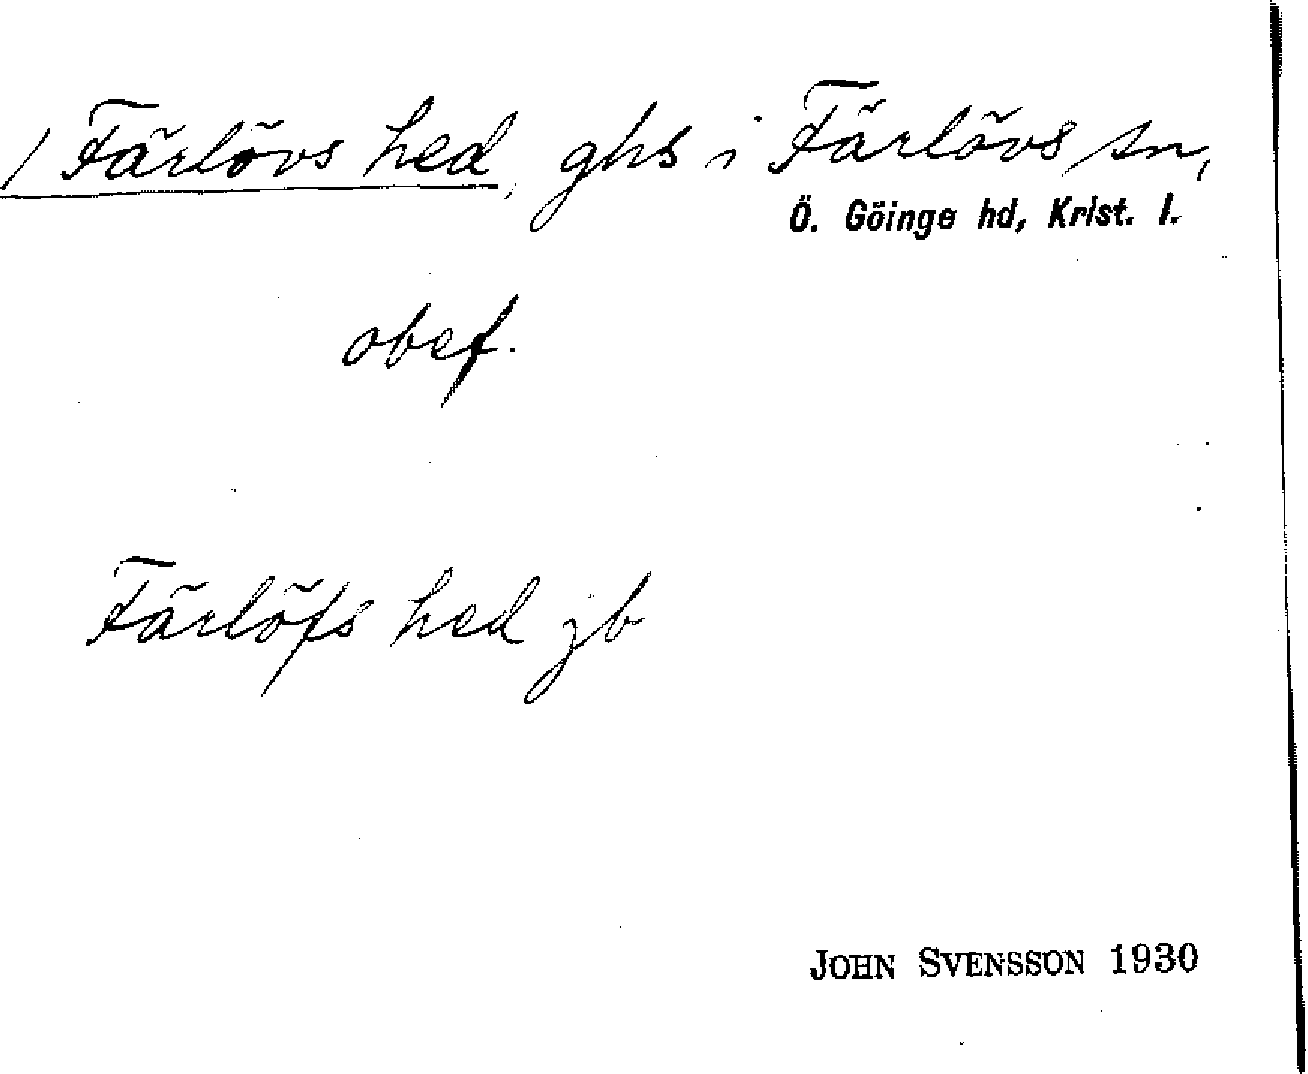 / Färlövs hed, ghs i Färlövs sn,
Ö. Göinge hd, Krist. l.
obef.
Färlöfs hed jb
JOHN SVENSSON 1930